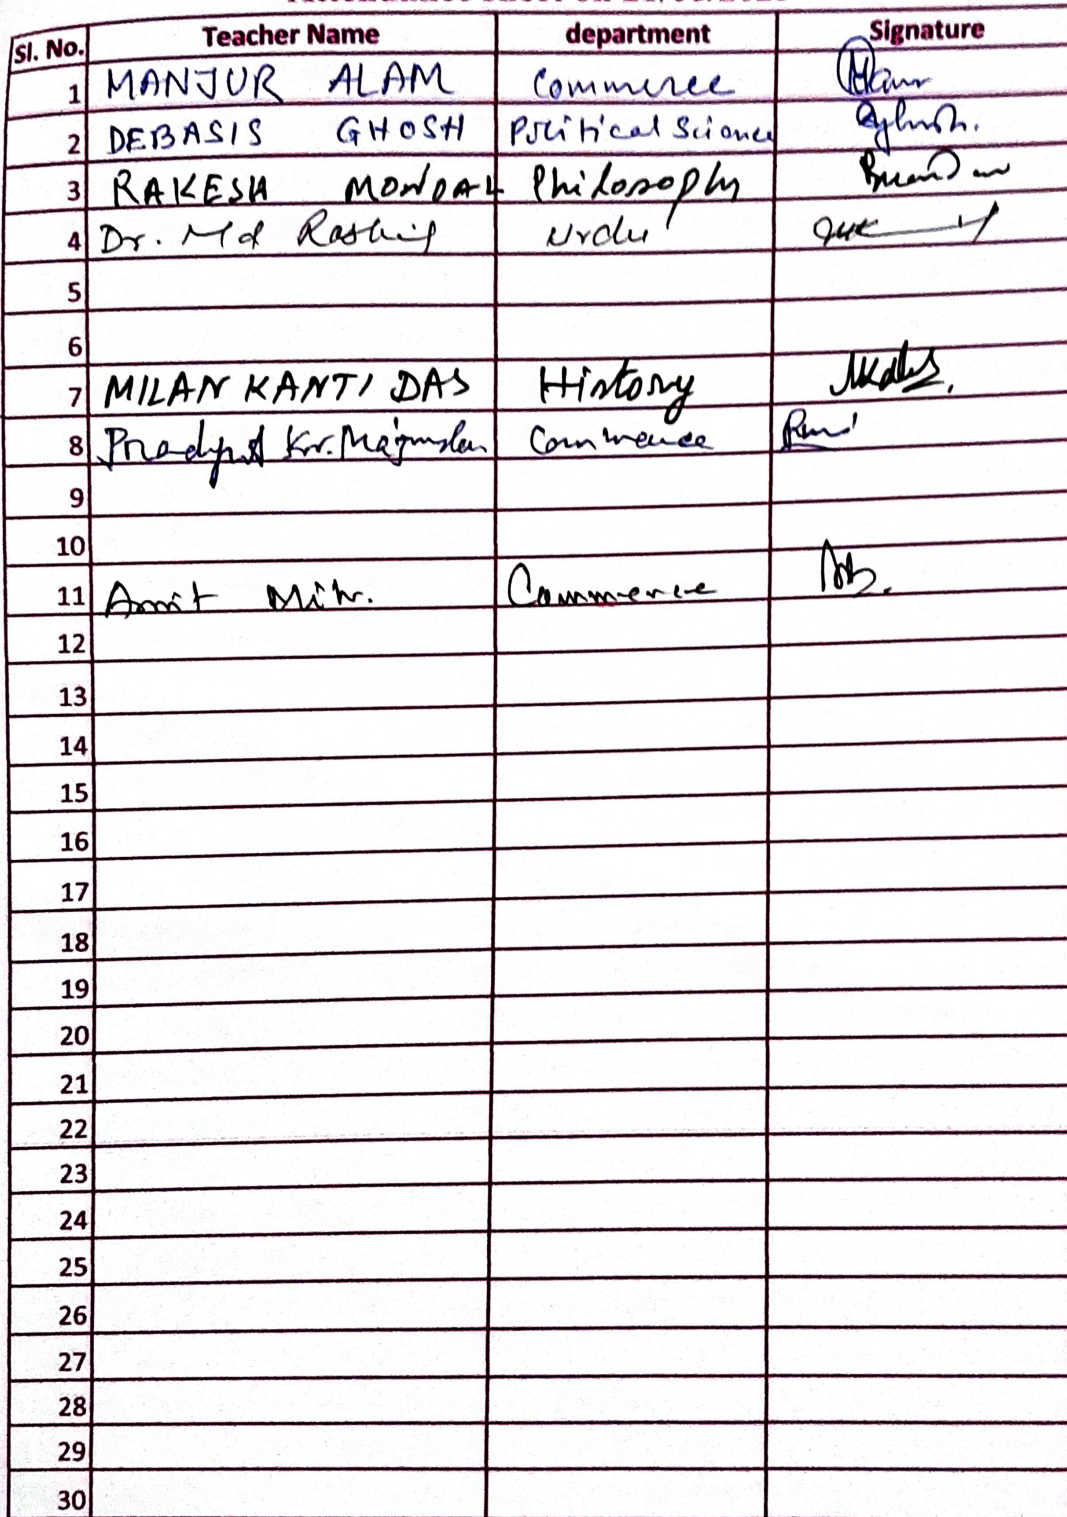 Sl. No. Teacher Name department Signature
1 MANJUR ALAM Commerce
2 DEBASIS GHOSH Political Science
3 RAKESH MONDAL Philosophy
4 Dr. Md Rashid Urdu
5
6
7 MILAN KANTI DAS History
8 Kr. Commerce
9
10
11 Amit Commerce
12
13
14
15
16
17
18
19
20
21
22
23
24
25
26
27
28
29
30